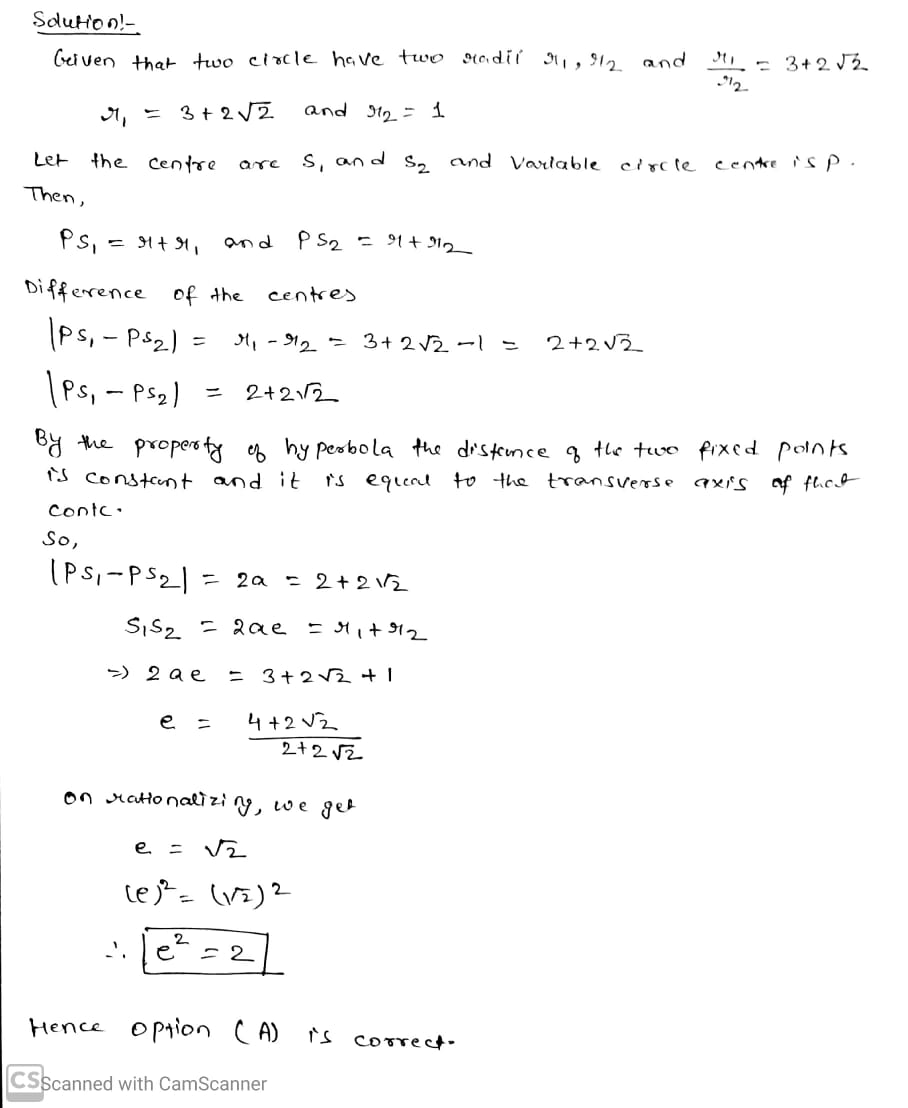 Solution!-
Given that two circle have two radii r₁, r₂ and r₁/r₂ = 3+2√2
r₁ = 3+2√2 and r₂ = 1
Let the centre are S₁ and S₂ and Variable circle centre is P.
Then,
PS₁ = r+r₁ and PS₂ = r+r₂
Difference of the centres
|PS₁ - PS₂| = r₁ - r₂ = 3+2√2 -1 = 2+2√2
|PS₁ - PS₂| = 2+2√2
By the property of hyperbola the distance of the two fixed points
is constant and it is equal to the transverse axis of that
conic.
So,
|PS₁-PS₂| = 2a = 2+2√2
S₁S₂ = 2ae = r₁+r₂
=> 2ae = 3+2√2 +1
e = 4+2√2 / 2+2√2
on rationalizing, we get
e = √2
(e)² = (√2)²
∴ e² = 2
Hence option (A) is correct.
CS Scanned with CamScanner